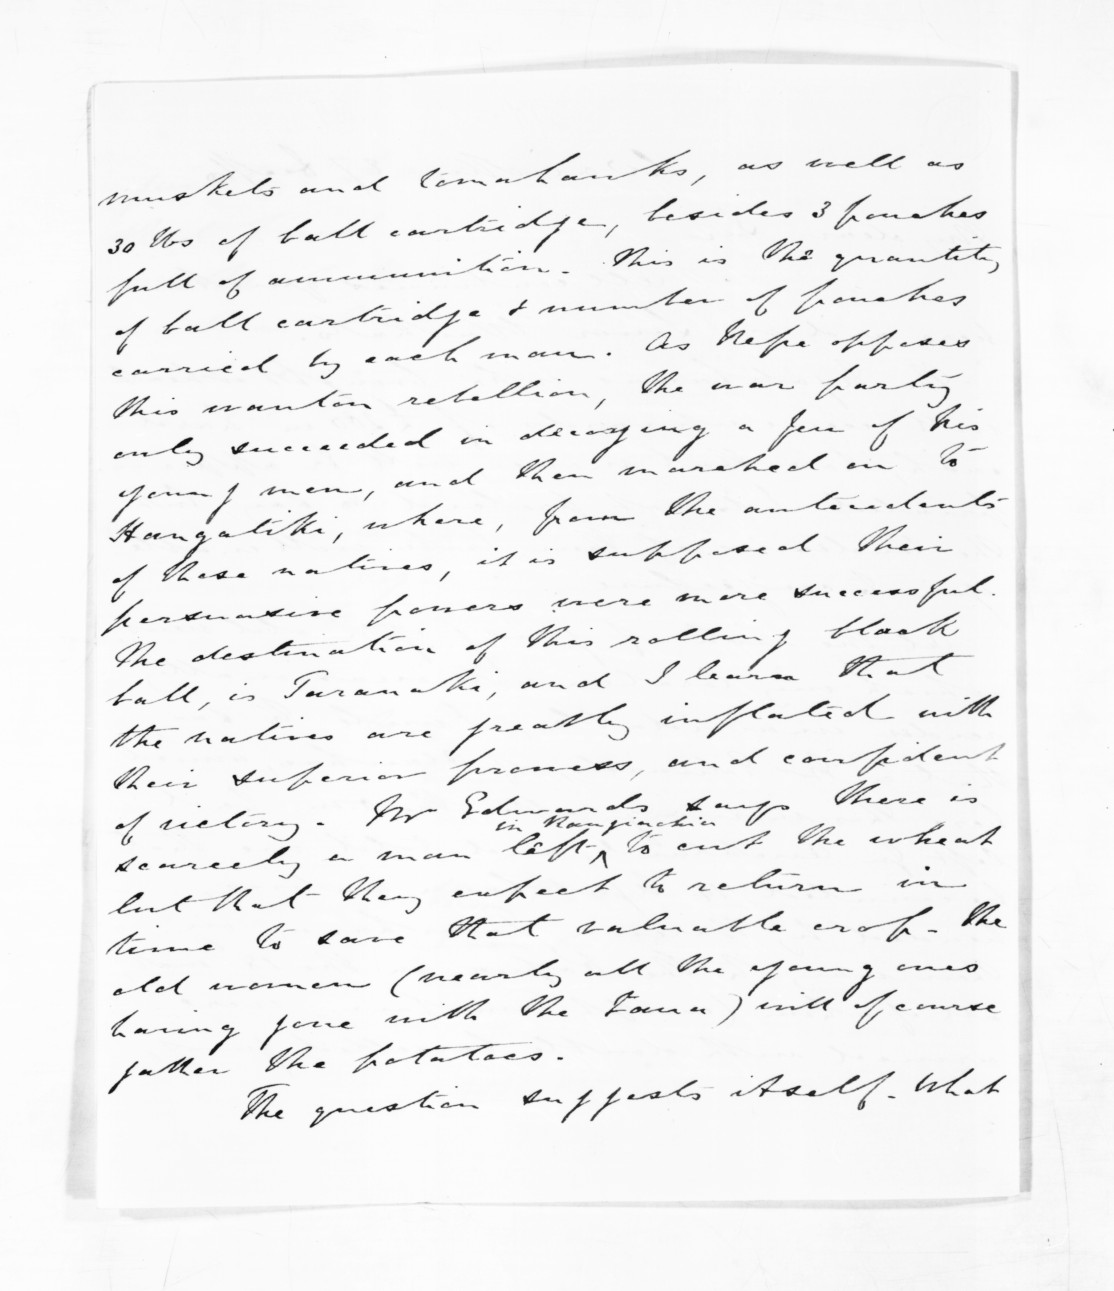 muskets and tomahawks, as well as
30 lbs of ball cartridge, besides 3 pouches
full of ammunition. This is the quantity
of ball cartridge & number of pouches
carried by each man. As Hepe opposes
this wanton rebellion, the war party
only succeeded in decoying a few of his
young men, and then marched on to
Hangatiki, where, from the antecedents
of these natives, it is supposed their
persuasive powers were more successful.
The destination of this rolling black
ball, is Taranaki, and I learn that
the natives are greatly inflated with
their superior prowess, and confident
of victory. Mr Edwards says there is
in Rangiaohia
scarcely a man left ^ to cut the wheat
but that they expect to return in
time to save that valuable crop. The
old women (nearly all the young ones
having gone with the Taua) will of course
gather the potatoes.
The question suggests itself. What